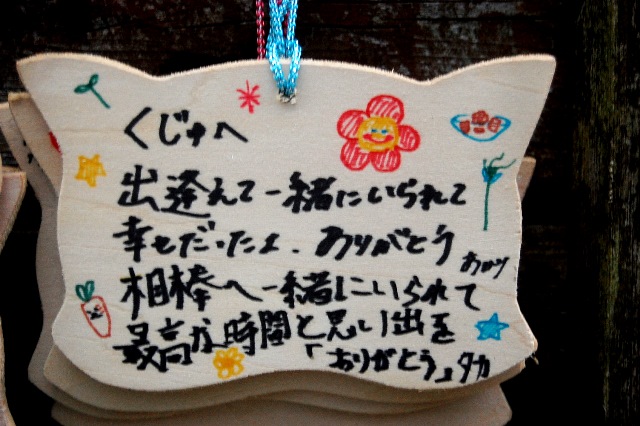 くじゅへ
出逢えて一緒にいられて
幸せだったよ。ありがとう
あかり
相棒へ一緒にいられて
最高な時間と思い出を
「ありがとう」タカ